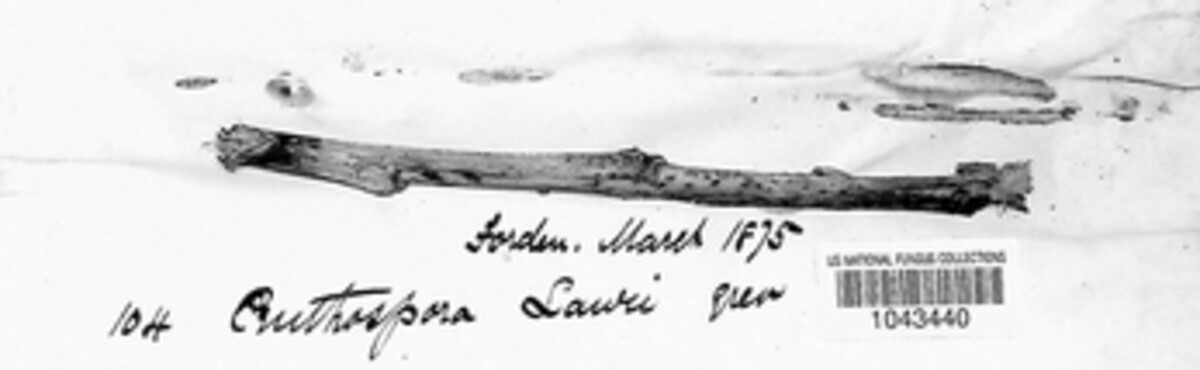 Forden. March 1875
US NATIONAL FUNGUS COLLECTIONS
1043440
104 Ceuthospora Lauri grev